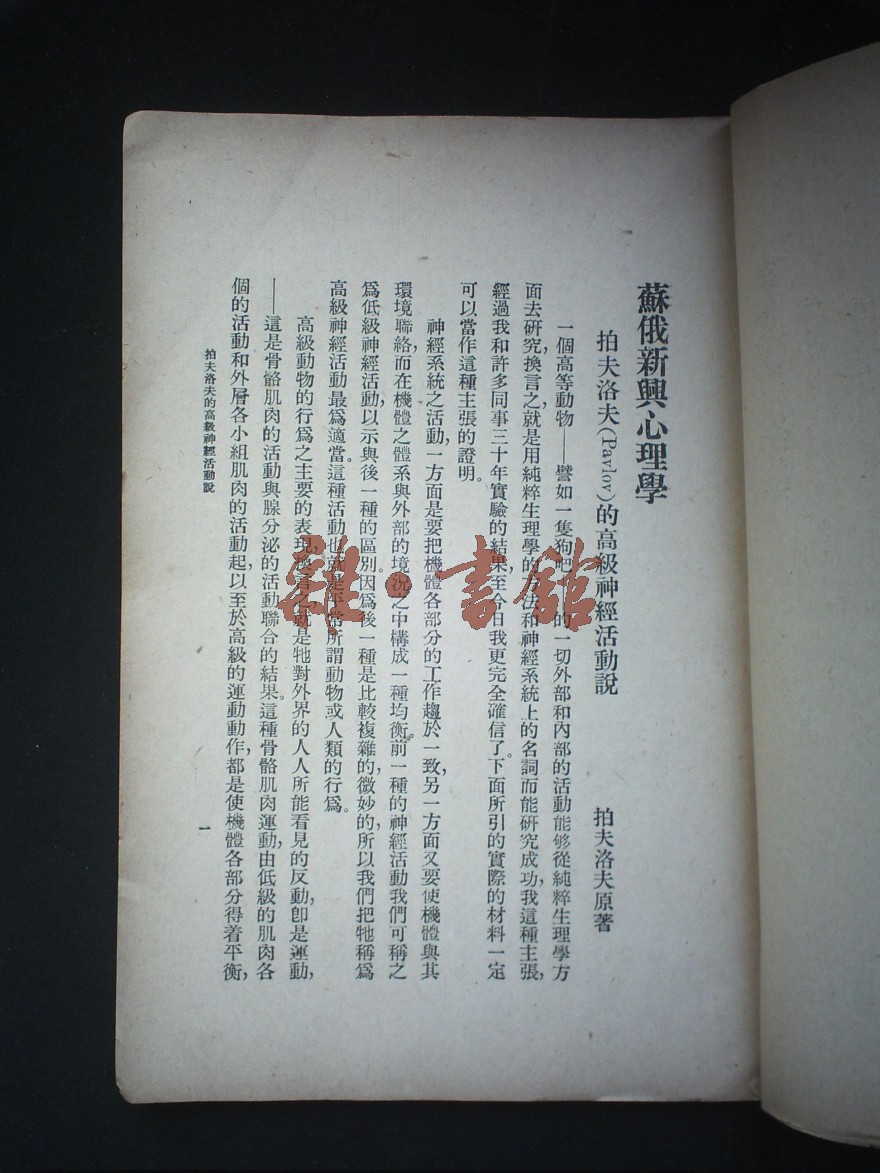 蘇俄新興心理學
拍夫洛夫(Pavlov)的高級神經活動說
拍夫洛夫原著
一個高等動物——譬如一隻狗吧——的一切外部和內部的活動能够從純粹生理學方
面去研究換言之,就是用純粹生理學的方法和神經系統上的名詞而能研究成功我這種主張,
經過我和許多同事三十年實驗的結果,至今日我更完全確信了。下面所引的實際的材料一定
可以當作這種主張的證明。
神經系統之活動,一方面是要把機體各部分的工作趨於一致,另一方面又要使機體與其
環境聯絡,而在機體之體系與外部的境況之中構成一種均衡。前一種的神經活動我們可稱之
爲低級神經活動,以示與後一種的區別。因爲後一種是比較複雜的,微妙的,所以我們把牠稱爲
高級神經活動最爲適當。這種活動也就是平常所謂動物或人類的行爲。
高級動物的行爲之主要的表現,換言之,就是牠對外界的人人所能看見的反動,卽是運動,
——這是骨骼肌肉的活動與腺分泌的活動聯合的結果。這種骨骼肌肉運動,由低級的肌肉各
個的活動和外層各小組肌肉的活動起,以至於高級的運動動作,都是使機體各部分得着平衡,
拍夫洛夫的高級神經活動說
一
雜·書館